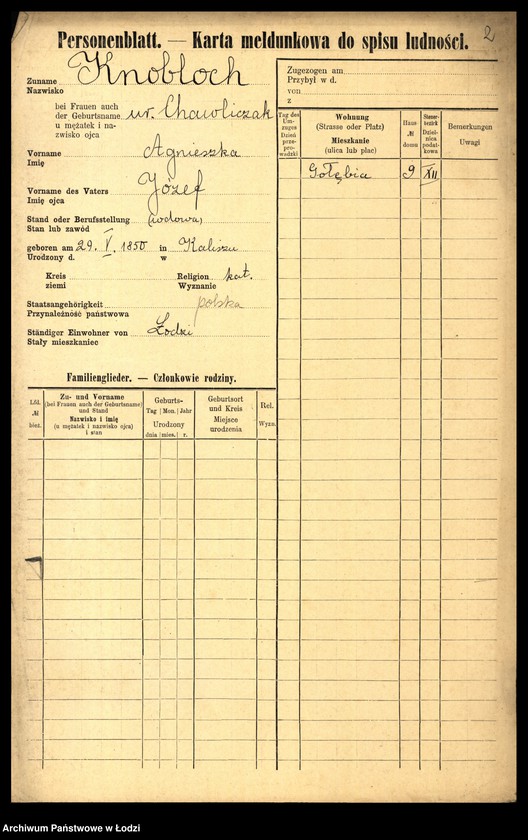 2
Personenblatt. — Karta meldunkowa do spisu ludności.
Zuname Knobloch
Nazwisko
bei Frauen auch
der Geburtsname ur. Chawliczak
u mężatek i na-
zwisko ojca
Vorname Agnieszka
Imię
Vorname des Vaters Józef
Imię ojca
Stand oder Berufsstellung (wdowa)
Stan lub zawód
geboren am 29. V. 1850 in Kaliszu
Urodzony d. w
Kreis Religion kat.
ziemi Wyznanie
Staatsangehörigkeit polska
Przynależność państwowa
Ständiger Einwohner von Łodzi
Stały mieszkaniec
Familienglieder. — Członkowie rodziny.
Lfd.
№
bież.
Zu- und Vorname
(bei Frauen auch der Geburtsname)
und Stand
Nazwisko i imię
(u mężatek i nazwisko ojca)
i stan
Geburts-
Tag Mon. Jahr
Urodzony
dnia mies. r.
Geburtsort
und Kreis
Miejsce
urodzenia
Rel.
Wyzn.
Zugezogen am
Przybył w d.
von
z
Tag des
Um-
zuges
Dzień
prze-
pro-
wadzki
Wohnung
(Strasse oder Platz)
Mieszkanie
(ulica lub plac)
Haus-
№
domu
Steuer-
bezirk
Dziel-
nica
podat-
kowa
Bemerkungen
Uwagi
Gołębia 9 XII
Archiwum Państwowe w Łodzi